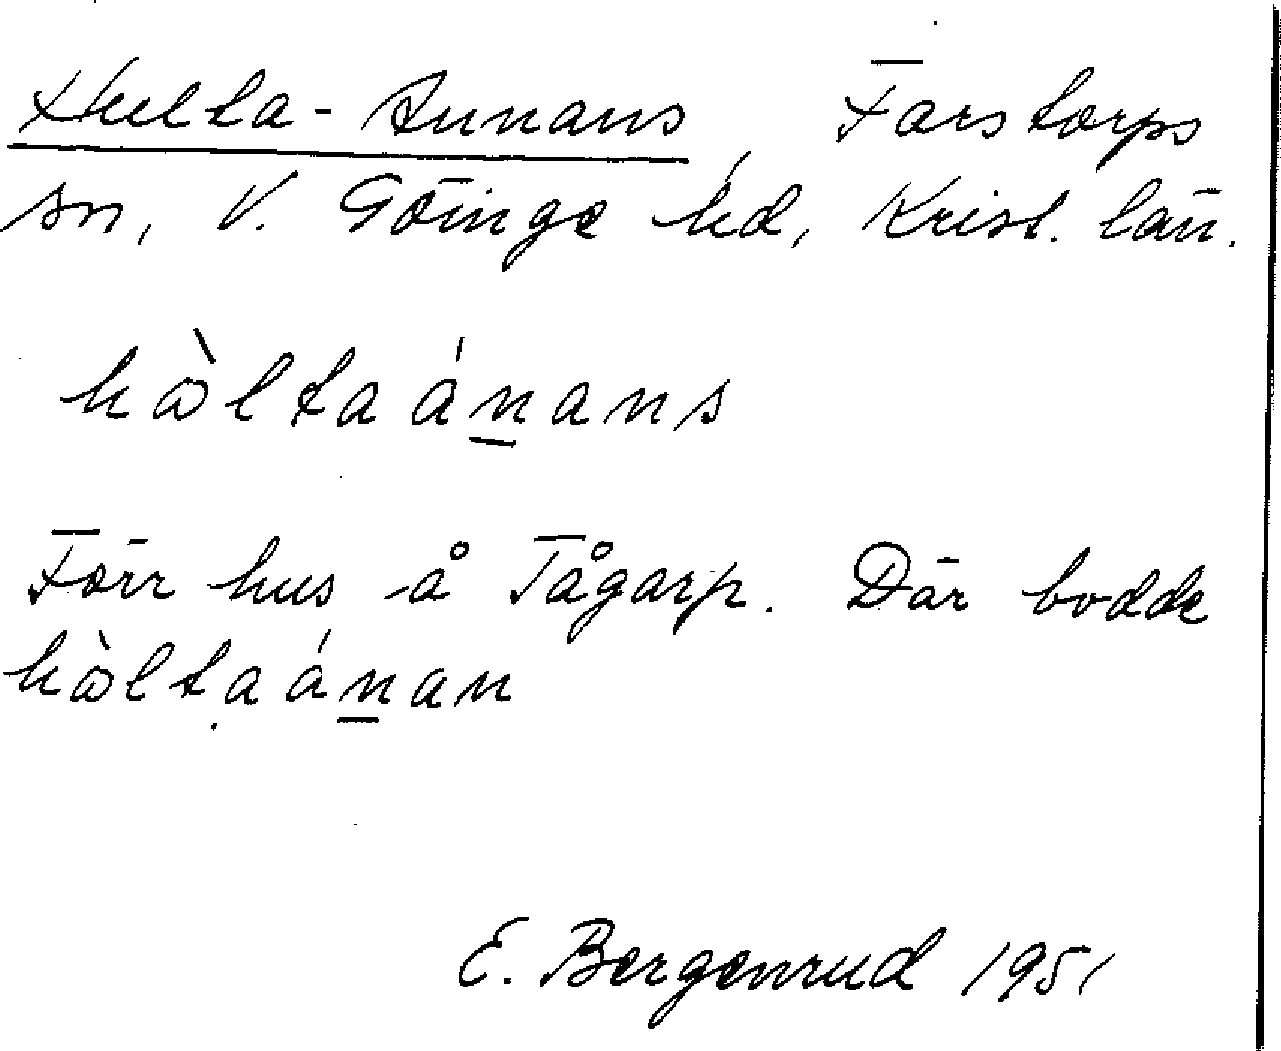 Hulta-Annans, Farstorps
sn, V. Göinge hd, Krist. län.
hòltaánans
Förr hus å Tågarp. Där bodde
hòltaánan
E. Bergenrud 1951